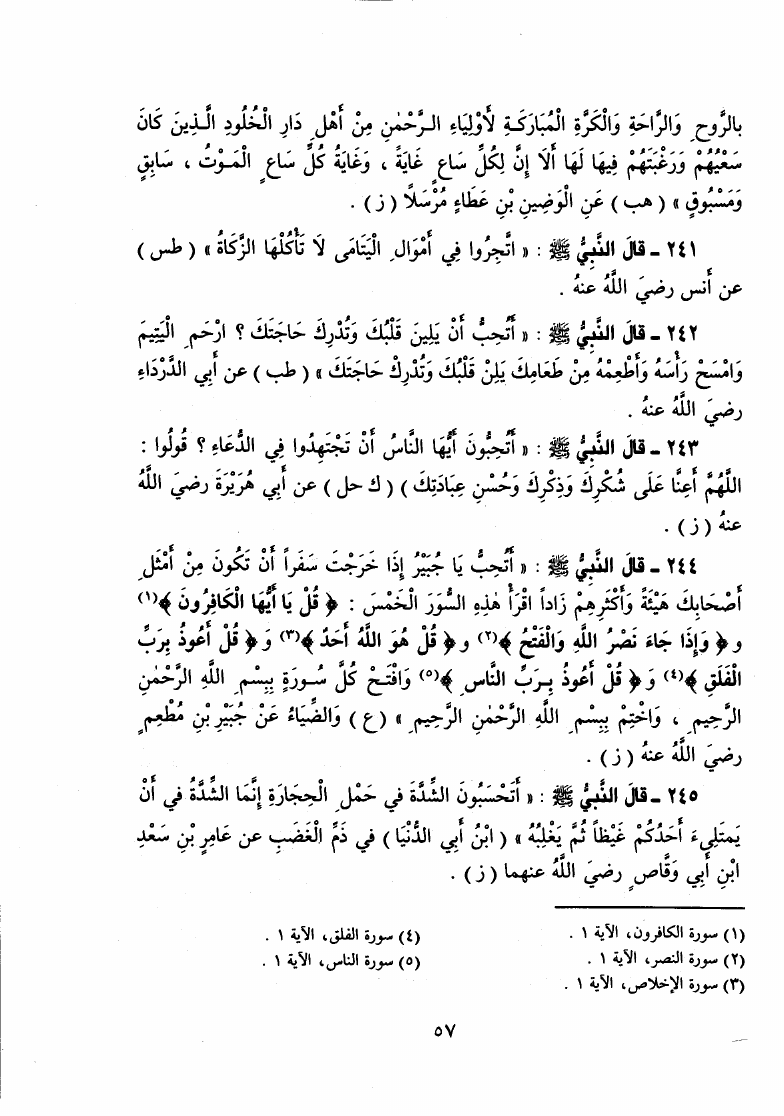 بِالرَّوحِ وَالرَّاحَةِ وَالْكَرَّةِ الْمُبَارَكَةِ لأَوْلِيَاءِ الرَّحْمٰنِ مِنْ أَهْلِ دَارِ الْخُلُودِ الَّذِينَ كَانَ
سَعْيُهُمْ وَرَغْبَتُهُمْ فِيهَا لَهَا أَلاَ إِنَّ لِكُلِّ سَاعٍ غَايَةً ، وَغَايَةُ كُلِّ سَاعٍ الْمَوْتُ ، سَابِقٍ
وَمَسْبُوقٍ » ( هب ) عَنِ الْوَضِينِ بْنِ عَطَاءٍ مُرْسَلاً ( ز ) .
٢٤١ ـ قالَ النَّبِيُّ ﷺ : « اتَّجِرُوا فِي أَمْوَالِ الْيَتَامَى لاَ تَأْكُلُهَا الزَّكَاةُ » ( طس )
عن أَنس رضيَ اللَّهُ عنهُ .
٢٤٢ ـ قالَ النَّبِيُّ ﷺ : « أَتُحِبُّ أَنْ يَلِينَ قَلْبُكَ وَتُدْرِكَ حَاجَتَكَ ؟ ارْحَمِ الْيَتِيمَ
وَامْسَحْ رَأْسَهُ وَأَطْعِمْهُ مِنْ طَعَامِكَ يَلِنْ قَلْبُكَ وَتُدْرِكْ حَاجَتَكَ » ( طب ) عن أَبي الدَّرْدَاءِ
رضيَ اللَّهُ عنهُ .
٢٤٣ ـ قالَ النَّبِيُّ ﷺ : « أَتُحِبُّونَ أَيُّهَا النَّاسُ أَنْ تَجْتَهِدُوا فِي الدُّعَاءِ ؟ قُولُوا :
اللَّهُمَّ أَعِنَّا عَلَى شُكْرِكَ وَذِكْرِكَ وَحُسْنِ عِبَادَتِكَ ) ( ك حل ) عن أَبي هُرَيْرَةَ رضيَ اللَّهُ
عنهُ ( ز ) .
٢٤٤ ـ قالَ النَّبِيُّ ﷺ : « أَتُحِبُّ يَا جُبَيْرُ إِذَا خَرَجْتَ سَفَراً أَنْ تَكُونَ مِنْ أَمْثَلِ
أَصْحَابِكَ هَيْئَةً وَأَكْثَرِهِمْ زَاداً اقْرَأْ هٰذِهِ السُّوَرَ الْخَمْسَ : ﴿ قُلْ يَا أَيُّهَا الْكَافِرُونَ ﴾(١)
و ﴿ وَإِذَا جَاءَ نَصْرُ اللَّهِ وَالْفَتْحُ ﴾(٢) و ﴿ قُلْ هُوَ اللَّهُ أَحَدٌ ﴾(٣) وَ ﴿ قُلْ أَعُوذُ بِرَبِّ
الْفَلَقِ ﴾(٤) وَ ﴿ قُلْ أَعُوذُ بِرَبِّ النَّاسِ ﴾(٥) وَافْتَحْ كُلَّ سُورَةٍ بِبِسْمِ اللَّهِ الرَّحْمٰنِ
الرَّحِيمِ ، وَاخْتِمْ بِبِسْمِ اللَّهِ الرَّحْمٰنِ الرَّحِيمِ » ( ع ) وَالضِّيَاءُ عَنْ جُبَيْرِ بْنِ مُطْعِمٍ
رضيَ اللَّهُ عنهُ ( ز ) .
٢٤٥ ـ قالَ النَّبِيُّ ﷺ : « أَتَحْسَبُونَ الشِّدَّةَ في حَمْلِ الْحِجَارَةِ إِنَّمَا الشِّدَّةُ في أَنْ
يَمتَلِىءَ أَحَدُكُمْ غَيْظاً ثُمَّ يَغْلِبُهُ » ( ابْنُ أَبي الدُّنْيَا ) في ذَمِّ الْغَضَبِ عن عَامِرِ بْنِ سَعْدِ
ابْنِ أَبِي وَقَّاصٍ رضيَ اللَّهُ عنهما ( ز ) .
(١) سورة الكافرون، الآية ١ .
(٢) سورة النصر، الآية ١ .
(٣) سورة الإخلاص، الآية ١ .
(٤) سورة الفلق، الآية ١ .
(٥) سورة الناس، الآية ١ .
٥٧